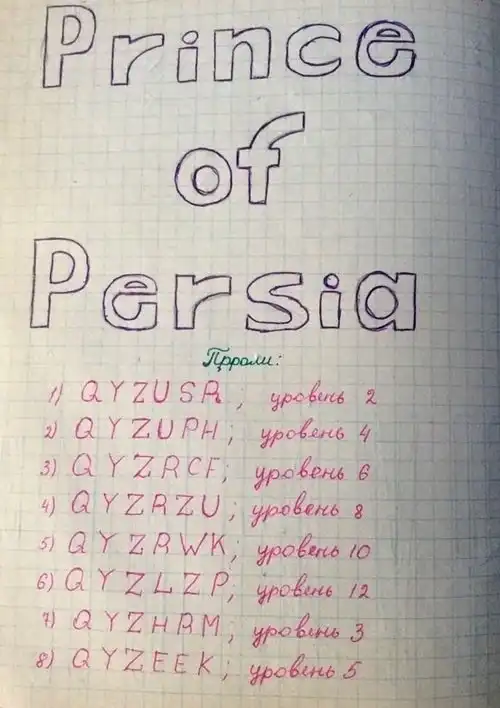 Prince
of
Persia
Пароли:
1) QYZUSR; уровень 2
2) QYZUPH; уровень 4
3) QYZRCF; уровень 6
4) QYZRZU; уровень 8
5) QYZRWK; уровень 10
6) QYZLZP; уровень 12
7) QYZHRM; уровень 3
8) QYZEEK; уровень 5